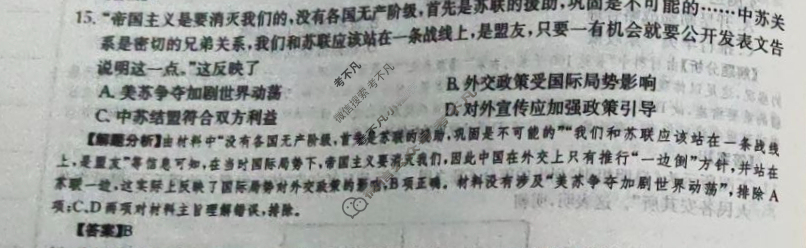 15.“帝国主义是要消灭我们的,没有各国无产阶级,首先是苏联的援助,巩固是不可能的……中苏关
系是密切的兄弟关系,我们和苏联应该站在一条战线上,是盟友,只要一有机会就要公开发表文告
说明这一点。”这反映了
A.美苏争夺加剧世界动荡
B.外交政策受国际局势影响
C.中苏结盟符合双方利益
D.对外宣传应加强政策引导
【解题分析】由材料中“没有各国无产阶级,首先是苏联的援助,巩固是不可能的”“我们和苏联应该站在一条战线
上,是盟友”等信息可知,在当时国际局势下,帝国主义要消灭我们,因此中国在外交上只有推行“一边倒”方针,并站在
苏联一边,这实际上反映了国际局势对外交政策的影响,B项正确。材料没有涉及“美苏争夺加剧世界动荡”,排除A
项;C、D两项对材料主旨理解错误,排除。
【答案】B
考不凡
微信搜索 考不凡